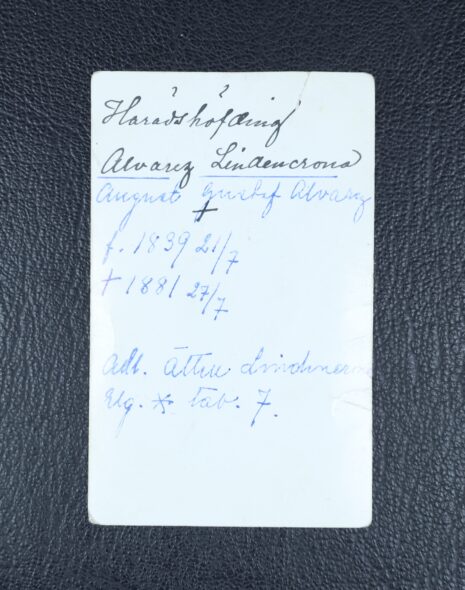 Häradshöfding
Alvarez Lindencrona
August Gustaf Alvarez
+
f. 1839 21/7
† 1881 27/7
Adl. ätten Lindencrona
Elg. * tab. 7.